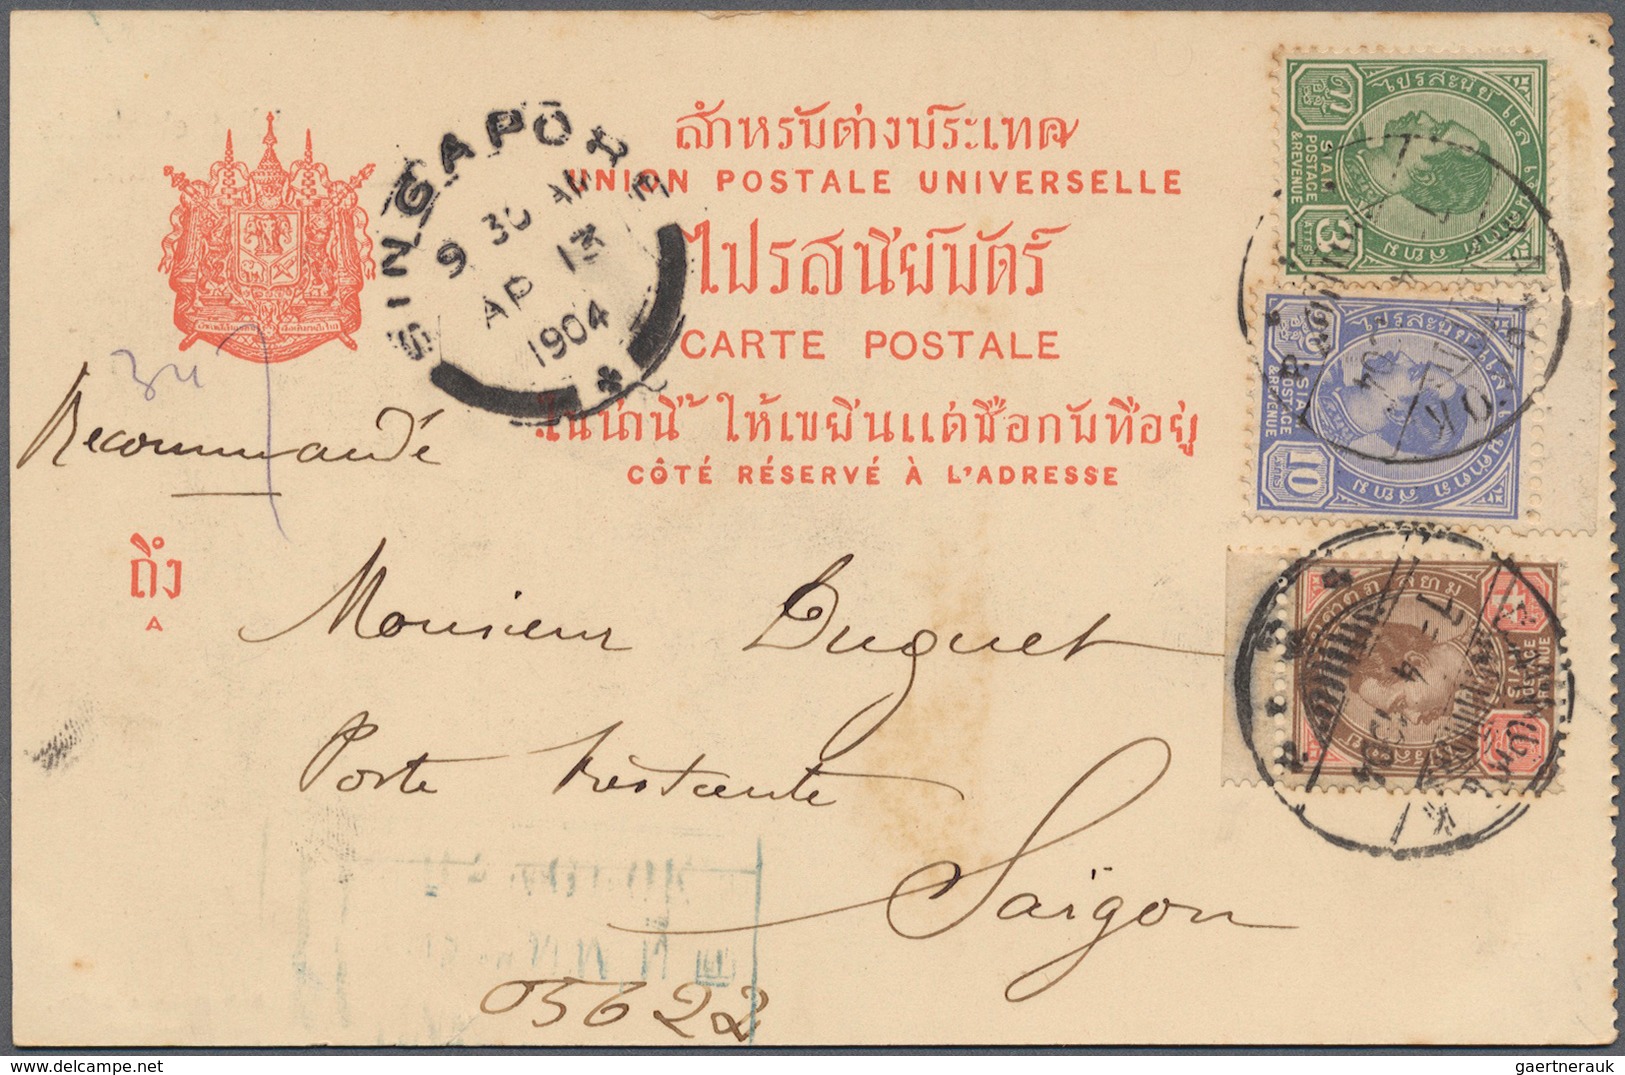 สำหรับต่างประเทศ
UNION POSTALE UNIVERSELLE
ไปรสนีย์บัตร์
CARTE POSTALE
ในน่านี้ ให้เขยีนแต่ชื่อกับที่อยู่
CÔTÉ RÉSERVÉ À L'ADRESSE
SINGAPORE
9 30 AM
AP 13
1904
Recommandé
ถึง
A
Monsieur Duguet
Poste Restante
Saïgon
05622
SIAM
POSTAGE
& REVENUE
3
ATTS
SIAM
POSTAGE
& REVENUE
10
SIAM
POSTAGE
7 4 1904
gaertnerauk